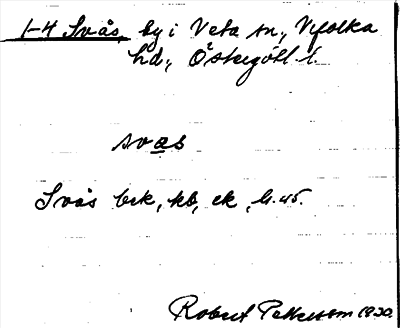 1-4 Svås, by i Veta sn., Vifolka
hd., Östergötl. l.
svas
Svås brk, kb, ek,
Robert Pettersson 1930.